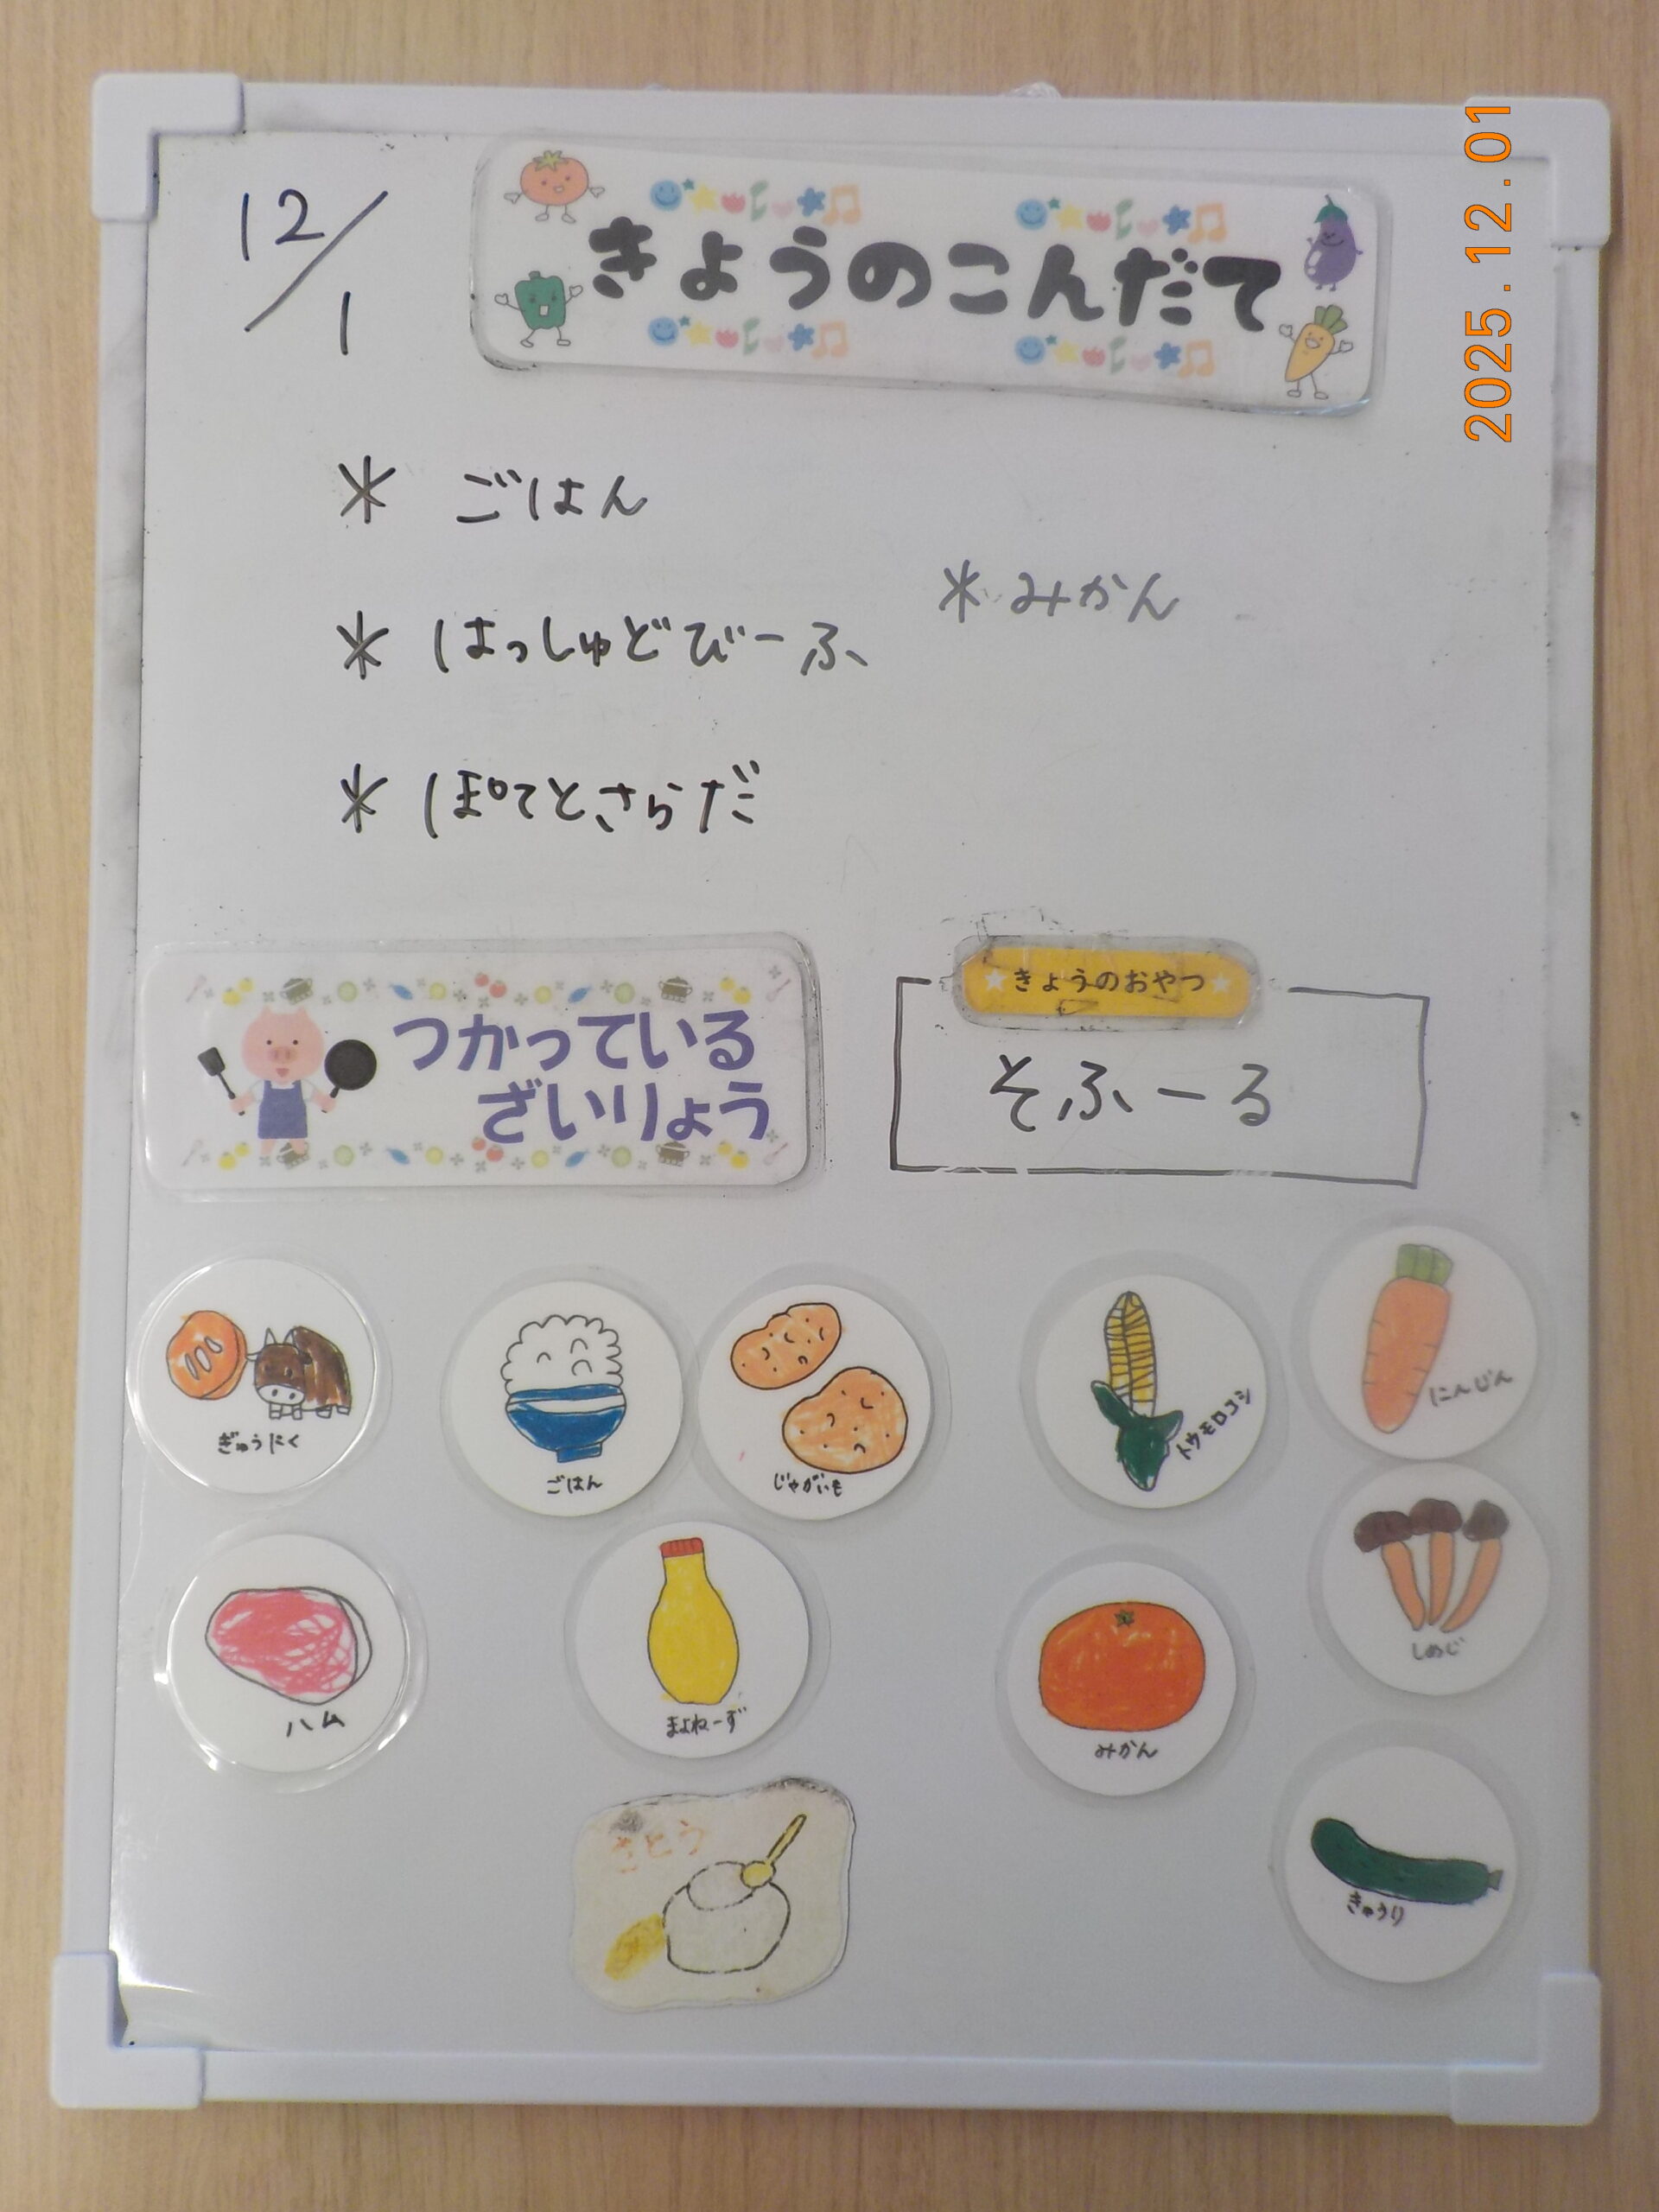 12/1
きょうのこんだて
2025.12.01
* ごはん
* みかん
* はっしゅどびーふ
* ぽてとさらだ
つかっている
ざいりょう
きょうのおやつ
そふーる
ぎゅうにく
ごはん
じゃがいも
トウモロコシ
にんじん
ハム
まよねーず
みかん
しめじ
さとう
きゅうり